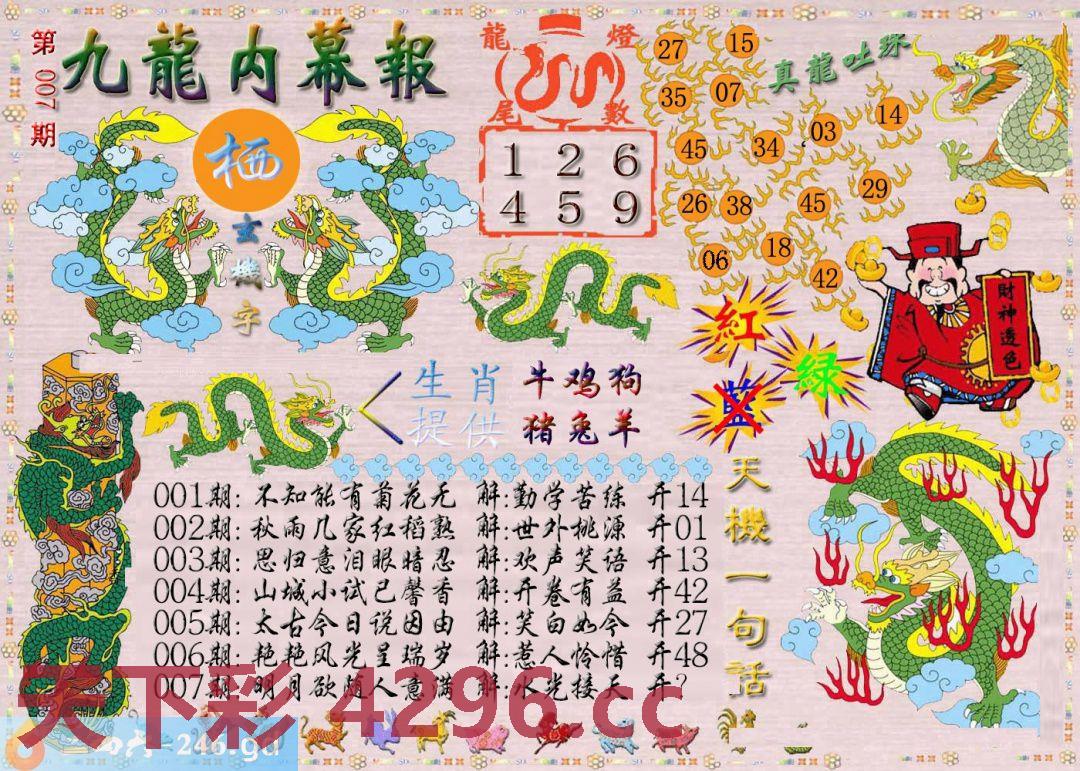 第007期
九龍内幕報
栖
玄機字
龍尾燈數
1 2 6
4 5 9
真龍吐珠
27 15
35 07
45 34 03 14
26 38 45 29
06 18 42
紅
綠
藍
財神透色
生肖提供
牛鸡狗
猪兔羊
天機一句話
001期: 不知能有菊花无 解:勤学苦练 开14
002期: 秋雨几家红稻熟 解:世外桃源 开01
003期: 思归意泪眼暗忍 解:欢声笑语 开13
004期: 山城小试已馨香 解:开卷有益 开42
005期: 太古今日说因由 解:笑白如今 开27
006期: 艳艳风光呈瑞岁 解:惹人怜惜 开48
007期: 明月欲随人意满 解:水光接天 开?
天下彩 4296.cc
=246.gd